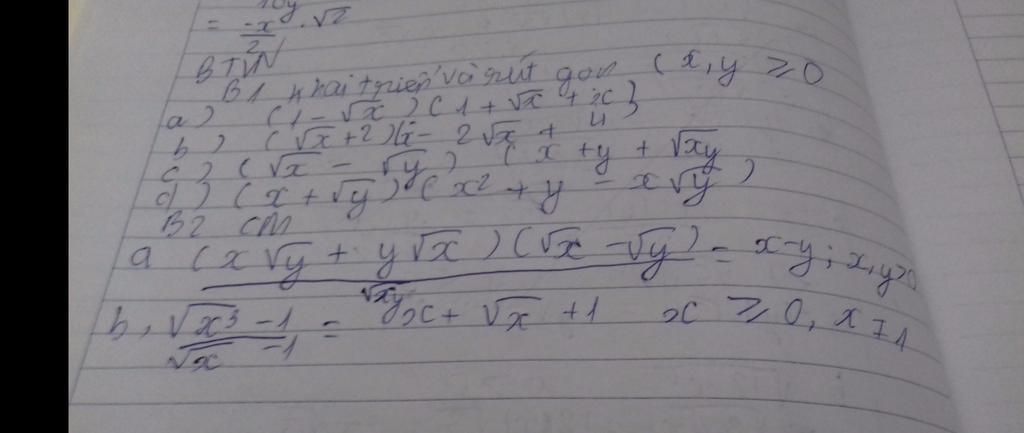 10y
= -x/2 . √2
BTVN
B1 khai triển và rút gọn (x, y ≥ 0
a) (1 - √x)(1 + √x + x)
b) (√x + 2)(x - 2√x + 4
c) (√x - √y) (x + y + √xy
d) (x + √y)(x² + y - x√y)
B2 CM
a (x√y + y√x)(√x - √y) / √xy = x - y; x, y > 0
b, √x³ - 1 / √x - 1 = x + √x + 1 x ≥ 0, x ≠ 1